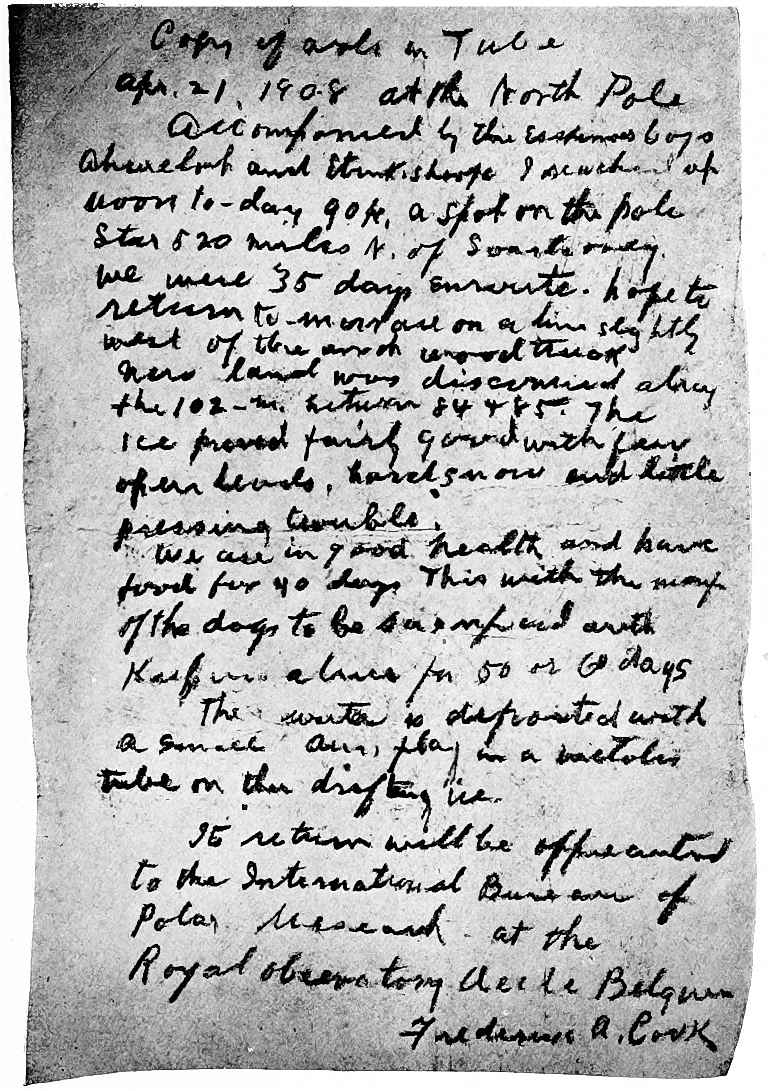 Copy of note in Tube
Apr. 21, 1908 at the North Pole
Accompanied by the Eskimos boys
Ahwelah and Etukishook I reached up
noon to-day 90 N. a spot on the pole
star 520 miles N. of Svartevoeg.
We were 35 days enroute. hope to
return to-morrow on a line slightly
west of the north
New land was discovered along
the 102 - m. between 84 & 85. The
ice proved fairly good with few
open leads, hard snow and little
pressing trouble.
We are in good health, and have
food for 40 days This with the
of the dogs to be sacrificed will
Keep us alive for 50 or 60 days
The is deposited with
a small Am. flag in a
tube on the drifting ice.
It return will be appreciated
to the International Bureau of
Polar Research at the
Royal observatory Uccle Belgium
Frederick A. Cook